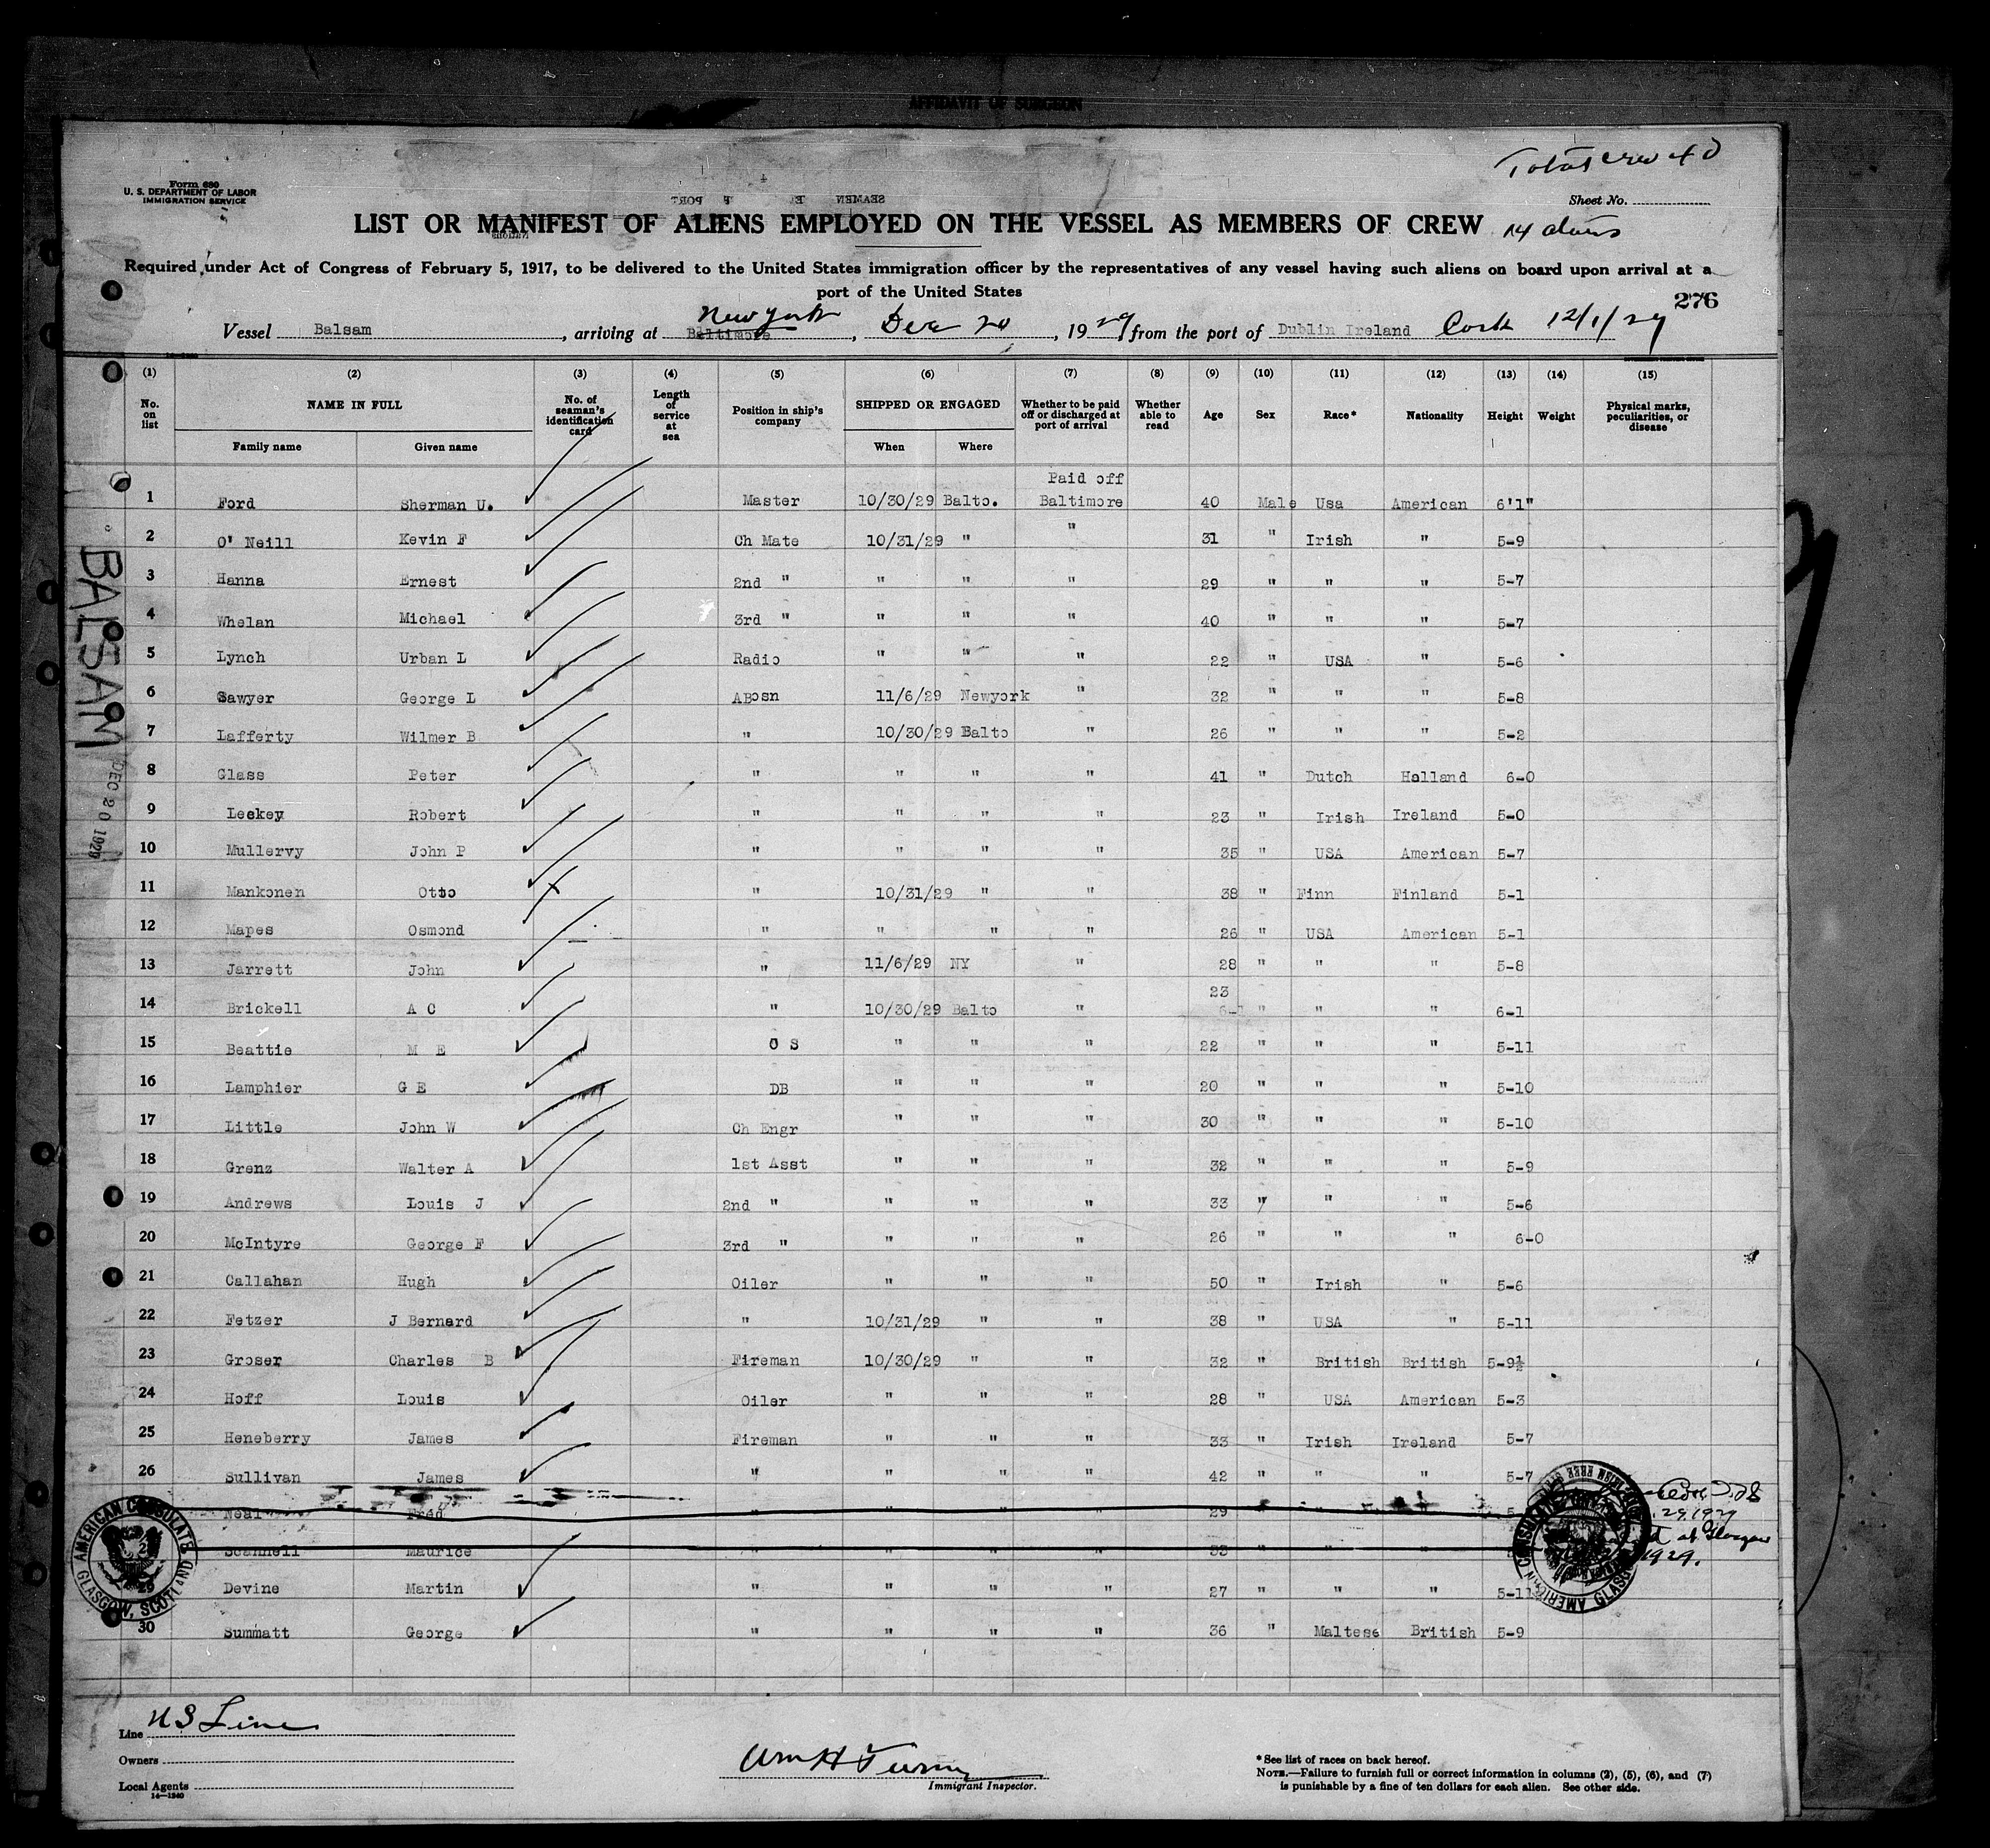 AFFIDAVIT OF SURGEON
Total crew 40
Form 680
U. S. DEPARTMENT OF LABOR
IMMIGRATION SERVICE
Sheet No.
LIST OR MANIFEST OF ALIENS EMPLOYED ON THE VESSEL AS MEMBERS OF CREW 14 aliens
Required under Act of Congress of February 5, 1917, to be delivered to the United States immigration officer by the representatives of any vessel having such aliens on board upon arrival at a
port of the United States
276
Vessel Balsam, arriving at Baltimore New York, Dec 20, 1929 from the port of Dublin Ireland Cork 12/1/29
(1) (2) (3) (4) (5) (6) (7) (8) (9) (10) (11) (12) (13) (14) (15)
No. on list NAME IN FULL Family name Given name No. of seaman's identification card Length of service at sea Position in ship's company SHIPPED OR ENGAGED When Where Whether to be paid off or discharged at port of arrival Whether able to read Age Sex Race* Nationality Height Weight Physical marks, peculiarities, or disease
Paid off
1 Ford Sherman U. Master 10/30/29 Balto. Baltimore 40 Male Usa American 6'1"
2 O' Neill Kevin F Ch Mate 10/31/29 " " 31 " Irish " 5-9
3 Hanna Ernest 2nd " " " " 29 " " " 5-7
4 Whelan Michael 3rd " " " " 40 " " " 5-7
5 Lynch Urban L Radio " " " 22 " USA " 5-6
6 Sawyer George L ABosn 11/6/29 Newyork " 32 " " " 5-8
7 Lafferty Wilmer B " 10/30/29 Balto " 26 " " " 5-2
8 Glass Peter " " " " 41 " Dutch Holland 6-0
9 Leckey Robert " " " " 23 " Irish Ireland 5-0
10 Mullervy John P " " " " 35 " USA American 5-7
11 Mankonen Otto " 10/31/29 " " 38 " Finn Finland 5-1
12 Mapes Osmond " " " " 26 " USA American 5-1
13 Jarrett John " 11/6/29 NY " 28 " " " 5-8
14 Brickell A C " 10/30/29 Balto " 23 " " " 6-1
15 Beattie M E O S " " " 22 " " " 5-11
16 Lamphier G E DB " " " 20 " " " 5-10
17 Little John W Ch Engr " " " 30 " " " 5-10
18 Grenz Walter A 1st Asst " " " 32 " " " 5-9
19 Andrews Louis J 2nd " " " " 33 " " " 5-6
20 McIntyre George F 3rd " " " " 26 " " " 6-0
21 Callahan Hugh Oiler " " " 50 " Irish " 5-6
22 Fetzer J Bernard " 10/31/29 " " 38 " USA " 5-11
23 Groser Charles B Fireman 10/30/29 " " 32 " British British 5-9½
24 Hoff Louis Oiler " " " 28 " USA American 5-3
25 Heneberry James Fireman " " " 33 " Irish Ireland 5-7
26 Sullivan James " " " " 42 " " " 5-7
Neal Fred " " " " 29 " " "
Scannell Maurice " " " " 33 " " "
Devine Martin " " " " 27 " " " 5-11
30 Summatt George " " " " 36 " Maltese British 5-9
BALSAM
DEC 20 1929
AMERICAN CONSULATE
GLASGOW, SCOTLAND
at Glasgow
1929.
Line US Lines
Owners
Local Agents
14—1240
Wm H Turney
Immigrant Inspector.
* See list of races on back hereof.
NOTE.—Failure to furnish full or correct information in columns (2), (5), (6), and (7)
is punishable by a fine of ten dollars for each alien. See other side.